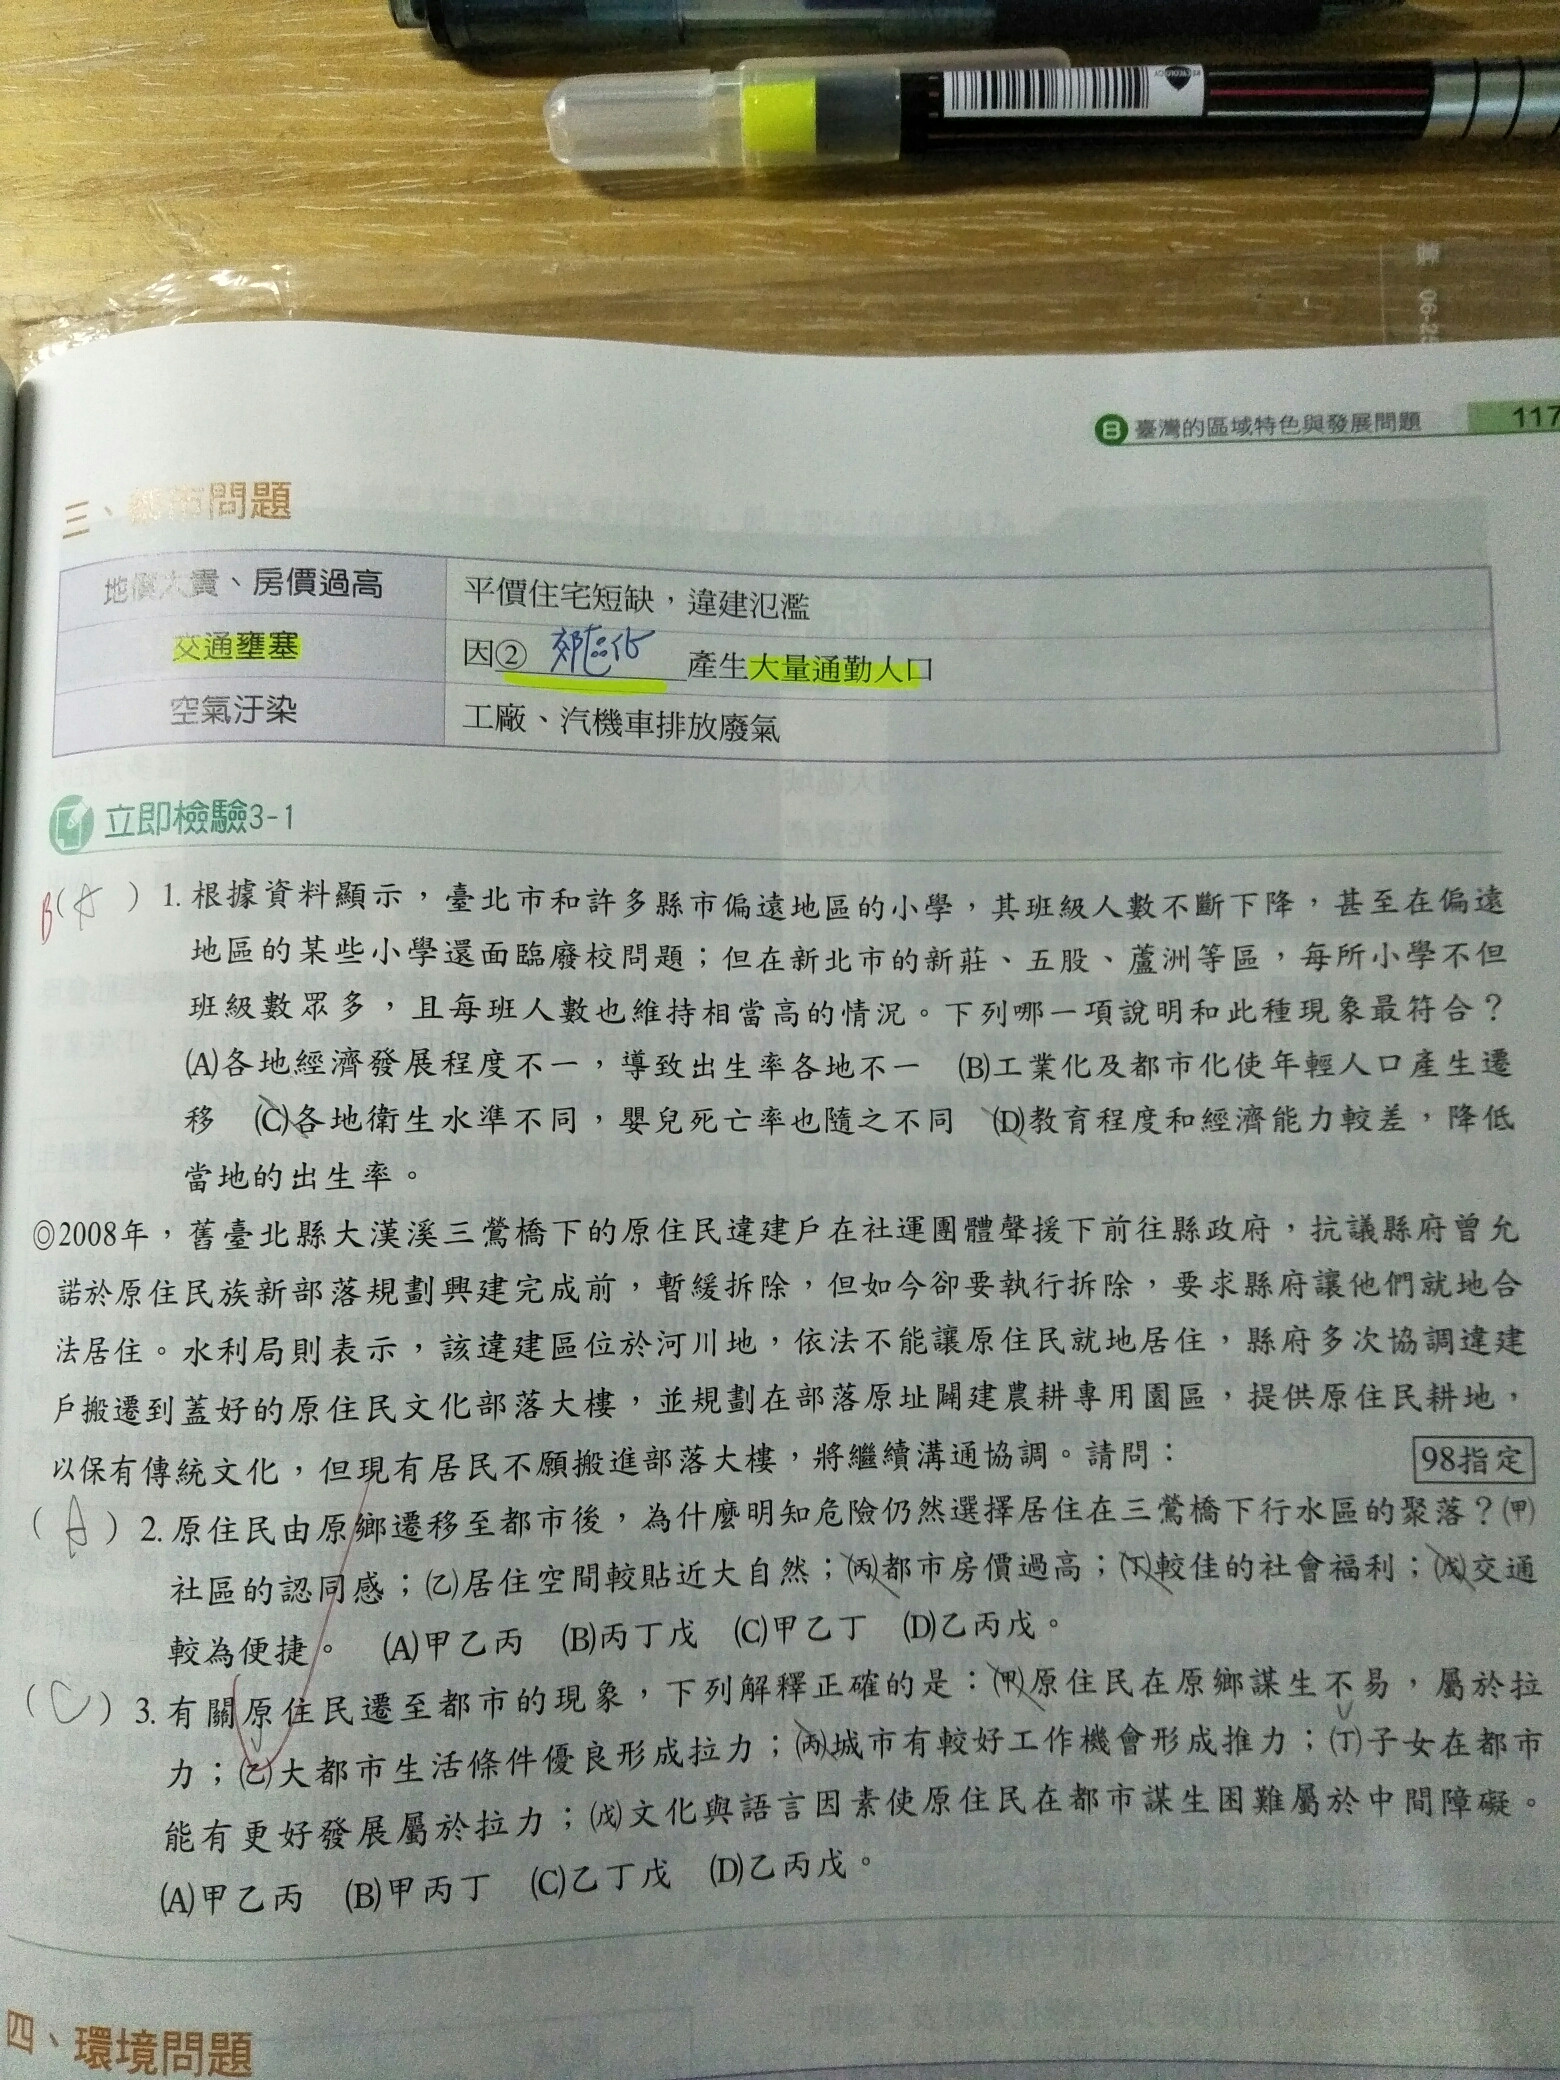 B 臺灣的區域特色與發展問題 117
三、都市問題
地價太貴、房價過高 平價住宅短缺，違建氾濫
交通壅塞 因② 郊區化 產生大量通勤人口
空氣汙染 工廠、汽機車排放廢氣
立即檢驗3-1
B(A) 1. 根據資料顯示，臺北市和許多縣市偏遠地區的小學，其班級人數不斷下降，甚至在偏遠
地區的某些小學還面臨廢校問題；但在新北市的新莊、五股、蘆洲等區，每所小學不但
班級數眾多，且每班人數也維持相當高的情況。下列哪一項說明和此種現象最符合？
(A)各地經濟發展程度不一，導致出生率各地不一 (B)工業化及都市化使年輕人口產生遷
移 (C)各地衛生水準不同，嬰兒死亡率也隨之不同 (D)教育程度和經濟能力較差，降低
當地的出生率。
◎2008年，舊臺北縣大漢溪三鶯橋下的原住民違建戶在社運團體聲援下前往縣政府，抗議縣府曾允
諾於原住民族新部落規劃興建完成前，暫緩拆除，但如今卻要執行拆除，要求縣府讓他們就地合
法居住。水利局則表示，該違建區位於河川地，依法不能讓原住民就地居住，縣府多次協調違建
戶搬遷到蓋好的原住民文化部落大樓，並規劃在部落原址闢建農耕專用園區，提供原住民耕地，
以保有傳統文化，但現有居民不願搬進部落大樓，將繼續溝通協調。請問： 98指定
(A) 2. 原住民由原鄉遷移至都市後，為什麼明知危險仍然選擇居住在三鶯橋下行水區的聚落？(甲)
社區的認同感；(乙)居住空間較貼近大自然；(丙)都市房價過高；(丁)較佳的社會福利；(戊)交通
較為便捷。 (A)甲乙丙 (B)丙丁戊 (C)甲乙丁 (D)乙丙戊。
(C) 3. 有關原住民遷至都市的現象，下列解釋正確的是：(甲)原住民在原鄉謀生不易，屬於拉
力；(乙)大都市生活條件優良形成拉力；(丙)城市有較好工作機會形成推力；(丁)子女在都市
能有更好發展屬於拉力；(戊)文化與語言因素使原住民在都市謀生困難屬於中間障礙。
(A)甲乙丙 (B)甲丙丁 (C)乙丁戊 (D)乙丙戊。
四、環境問題